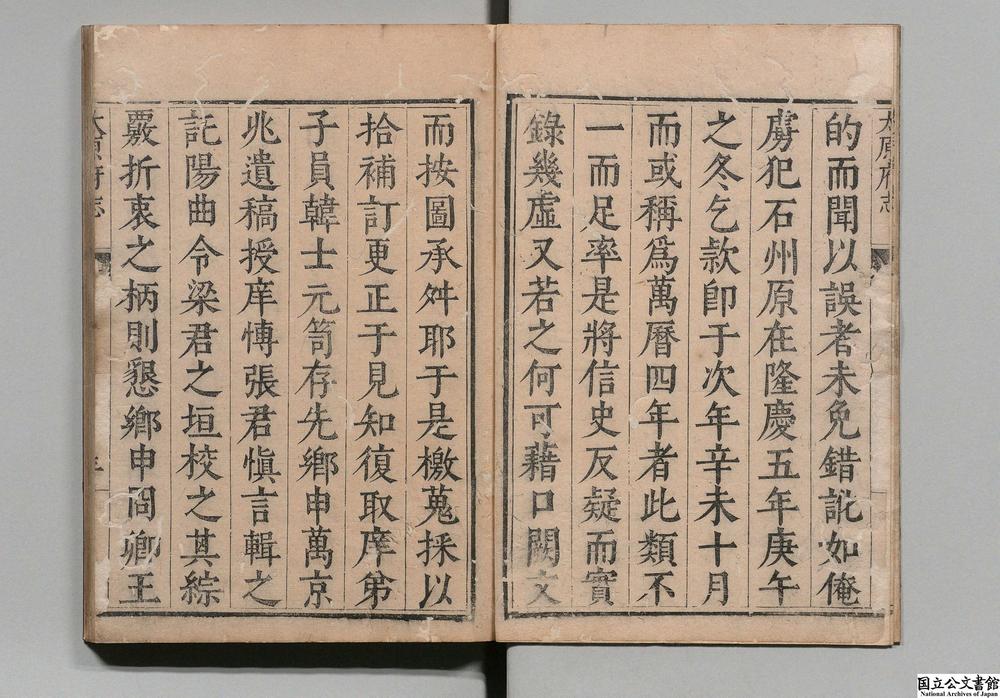 太原府志
的而聞以誤者未免錯訛如俺
虜犯石州原在隆慶五年庚午
之冬乞款卽于次年辛未十月
而或稱爲萬曆四年者此類不
一而足率是將信史反疑而實
錄幾虛又若之何可藉口闕文
而按圖承舛耶于是檄蒐採以
拾補訂更正于見知復取庠弟
子員韓士元笥存先鄉申萬京
兆遺稿授庠慱張君愼言輯之
託陽曲令梁君之垣校之其綜
覈折衷之柄則懇鄉申冏卿王
太原府志
国立公文書館
National Archives of Japan